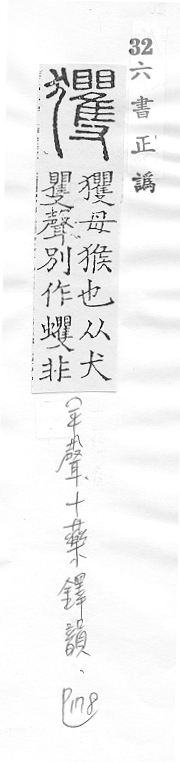 32 六書正譌
玃
玃母猴也从犬
矍聲別作蠼非
(平聲十藥鐸韻、P178)